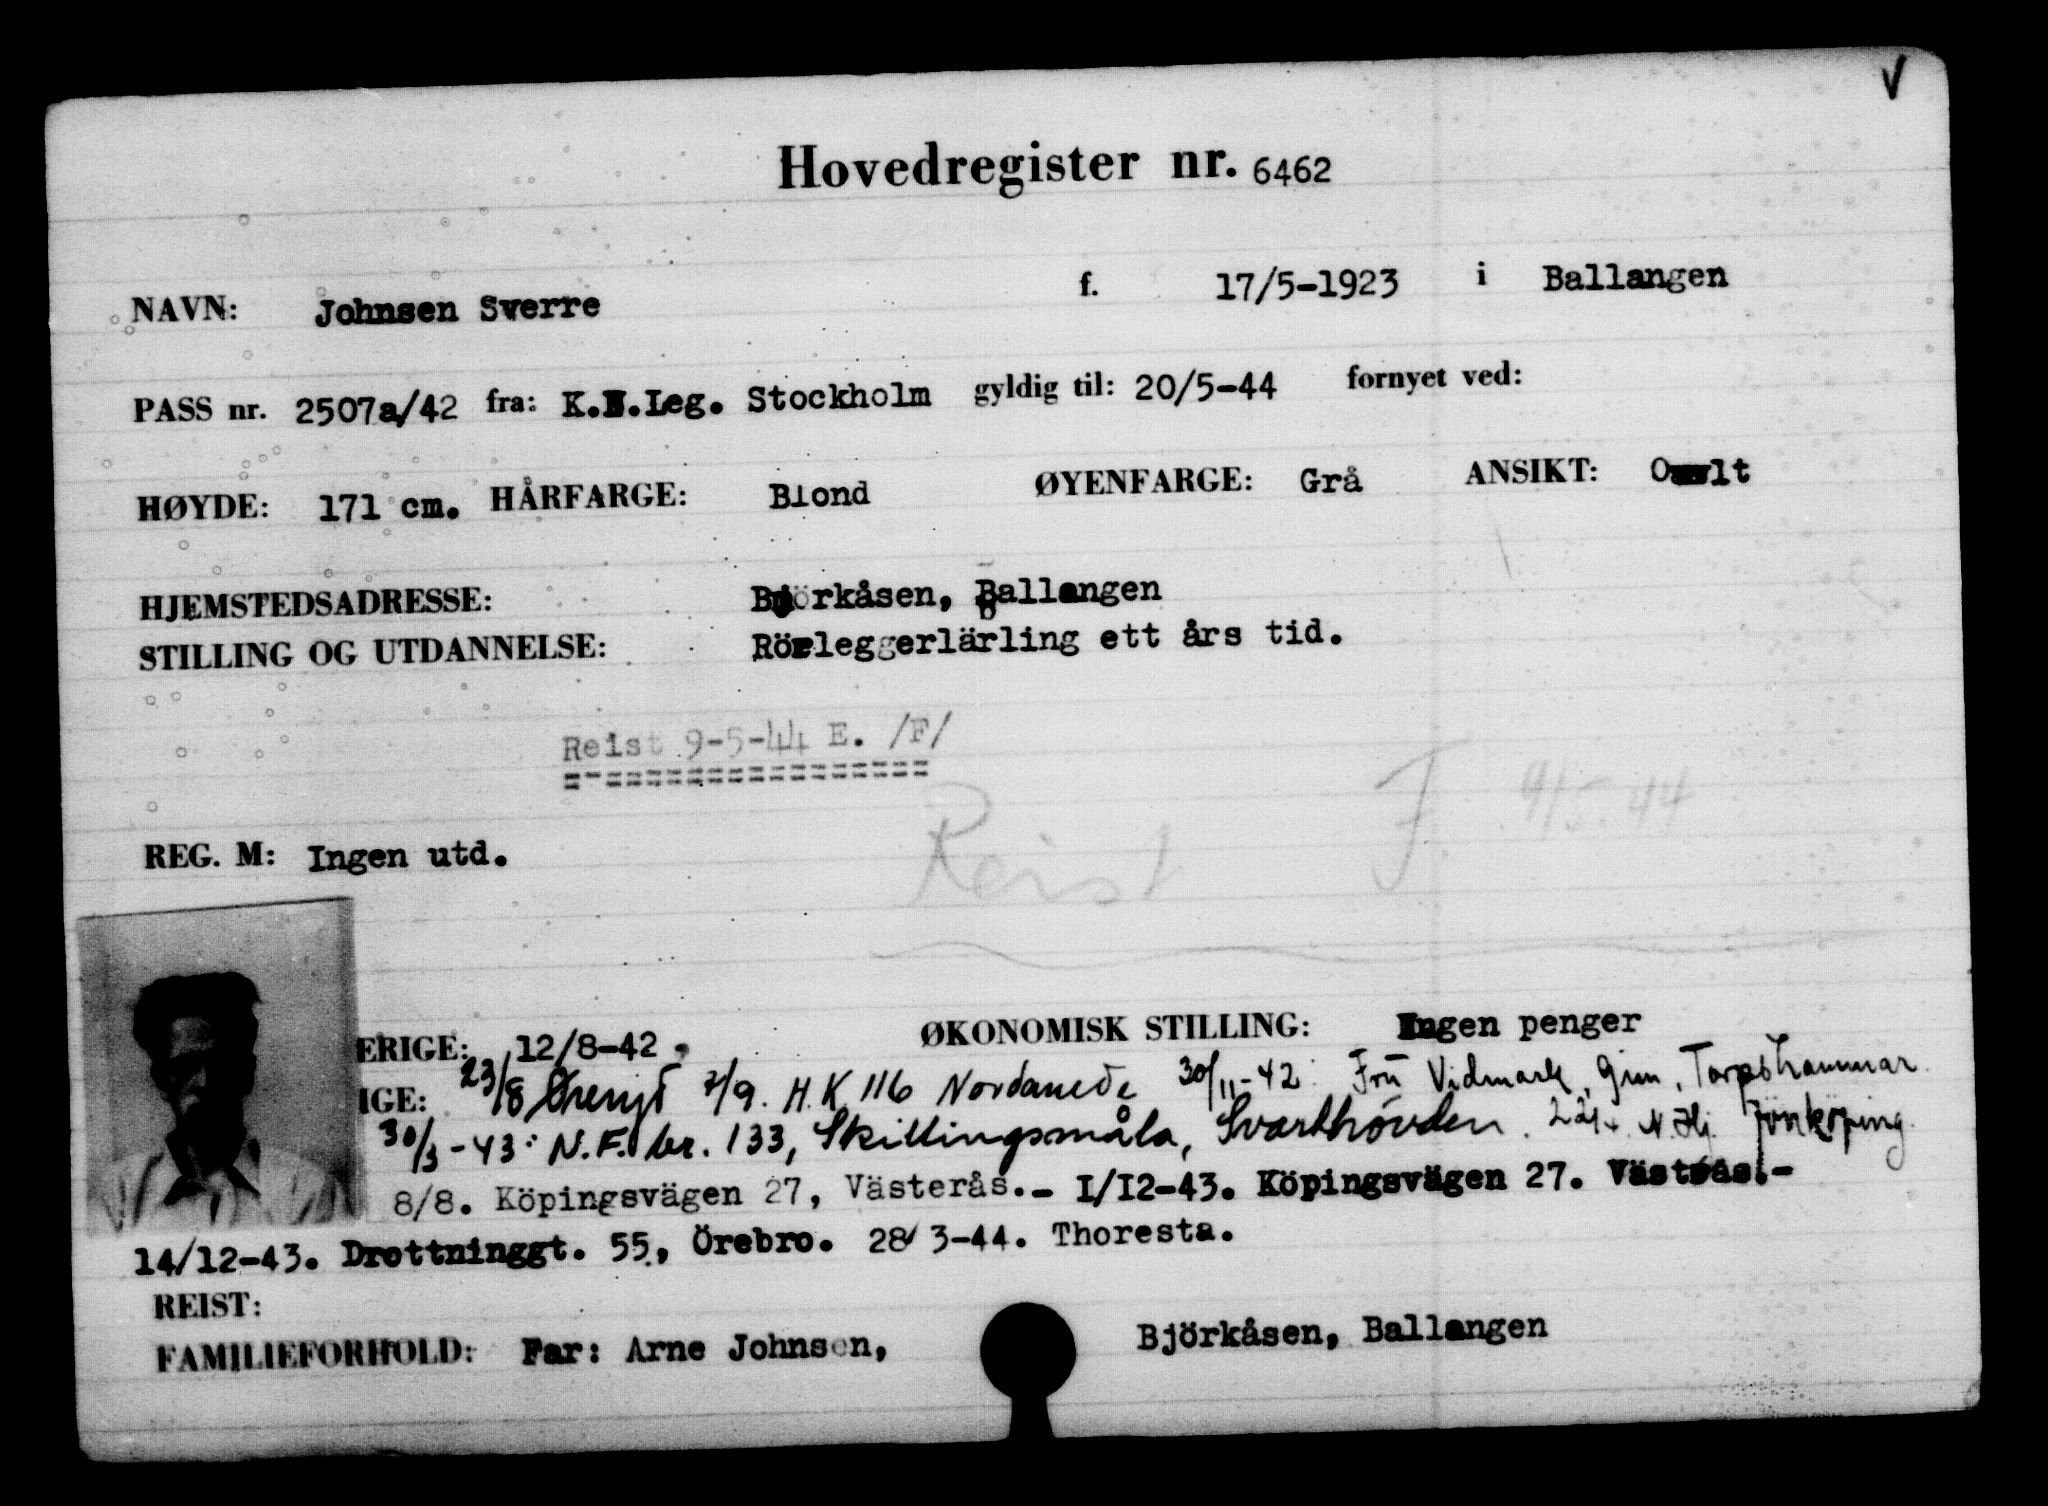 V
Hovedregister nr. 6462
NAVN: Johnsen Sverre f. 17/5-1923 i Ballangen
PASS nr. 2507a/42 fra: K.N.Leg. Stockholm gyldig til: 20/5-44 fornyet ved:
HØYDE: 171 cm. HÅRFARGE: Blond ØYENFARGE: Grå ANSIKT: Ovalt
HJEMSTEDSADRESSE: Björkåsen, Ballangen
STILLING OG UTDANNELSE: Rörleggerlärling ett års tid.
Reist 9-5-44 E. /F/
Reist F 9/5-44
REG. M: Ingen utd.
ERIGE: 12/8-42. ØKONOMISK STILLING: Ingen penger
IGE: 23/8 7/9. H.K. 116 Nordanede 30/11-42: Fru Vidmark, Gim, Torpshammar.
30/3-43: N.F. br. 133, Skillingsmåla, Svarthövden. N. Hj. Jönköping.
8/8. Köpingsvägen 27, Västerås.- I/I2-43. Köpingsvägen 27. Västrås.-
14/12-43. Drottninggt. 55, Örebro. 28/3-44. Thoresta.
REIST:
FAMILIEFORHOLD: Far: Arne Johnsen, Björkåsen, Ballangen